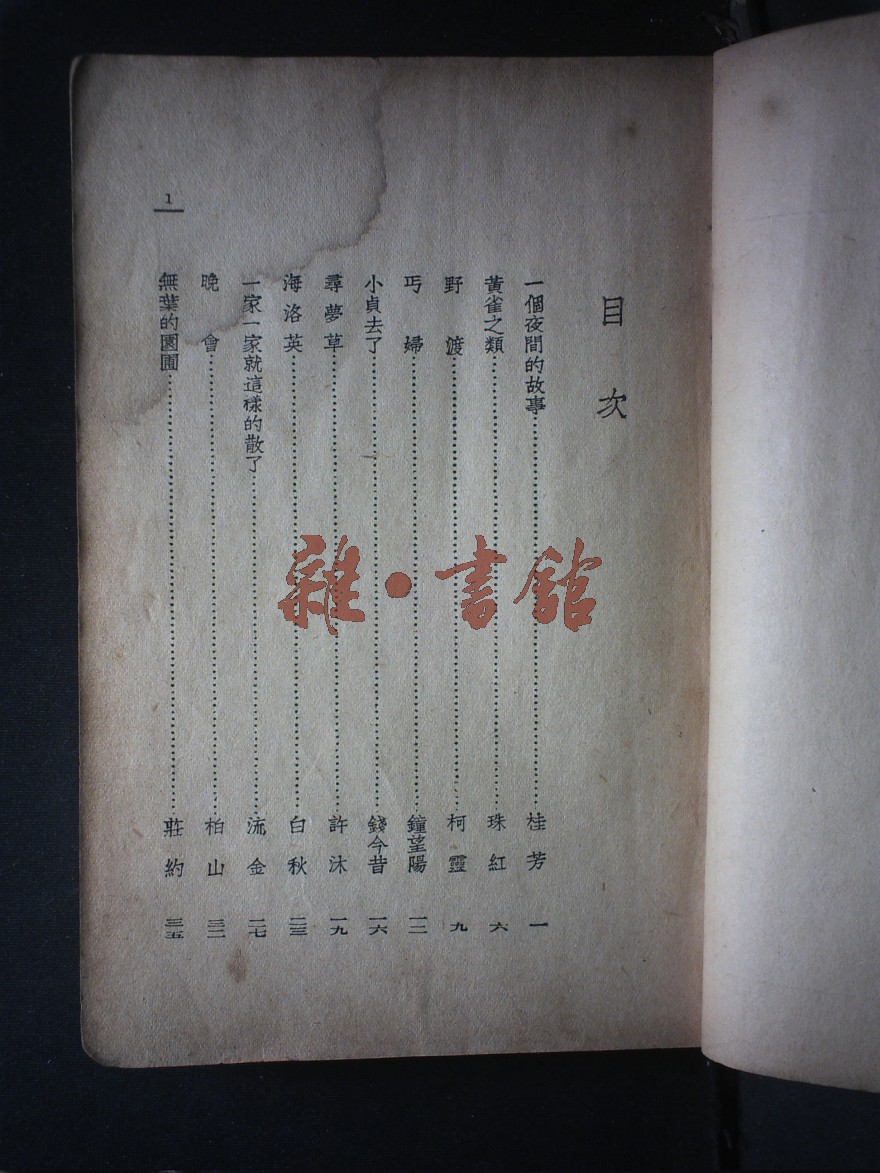 目次
一個夜間的故事⋯⋯桂芳 一
黃雀之類⋯⋯珠紅 六
野渡⋯⋯柯靈 九
丐婦⋯⋯鐘望陽 一二
小貞去了⋯⋯錢今昔 一六
尋夢草⋯⋯許沐 一九
海洛英⋯⋯白秋 二三
一家一家就這樣的散了⋯⋯流金 二七
晚會⋯⋯柏山 三二
無葉的園圃⋯⋯莊約 三五
1
雜·書館